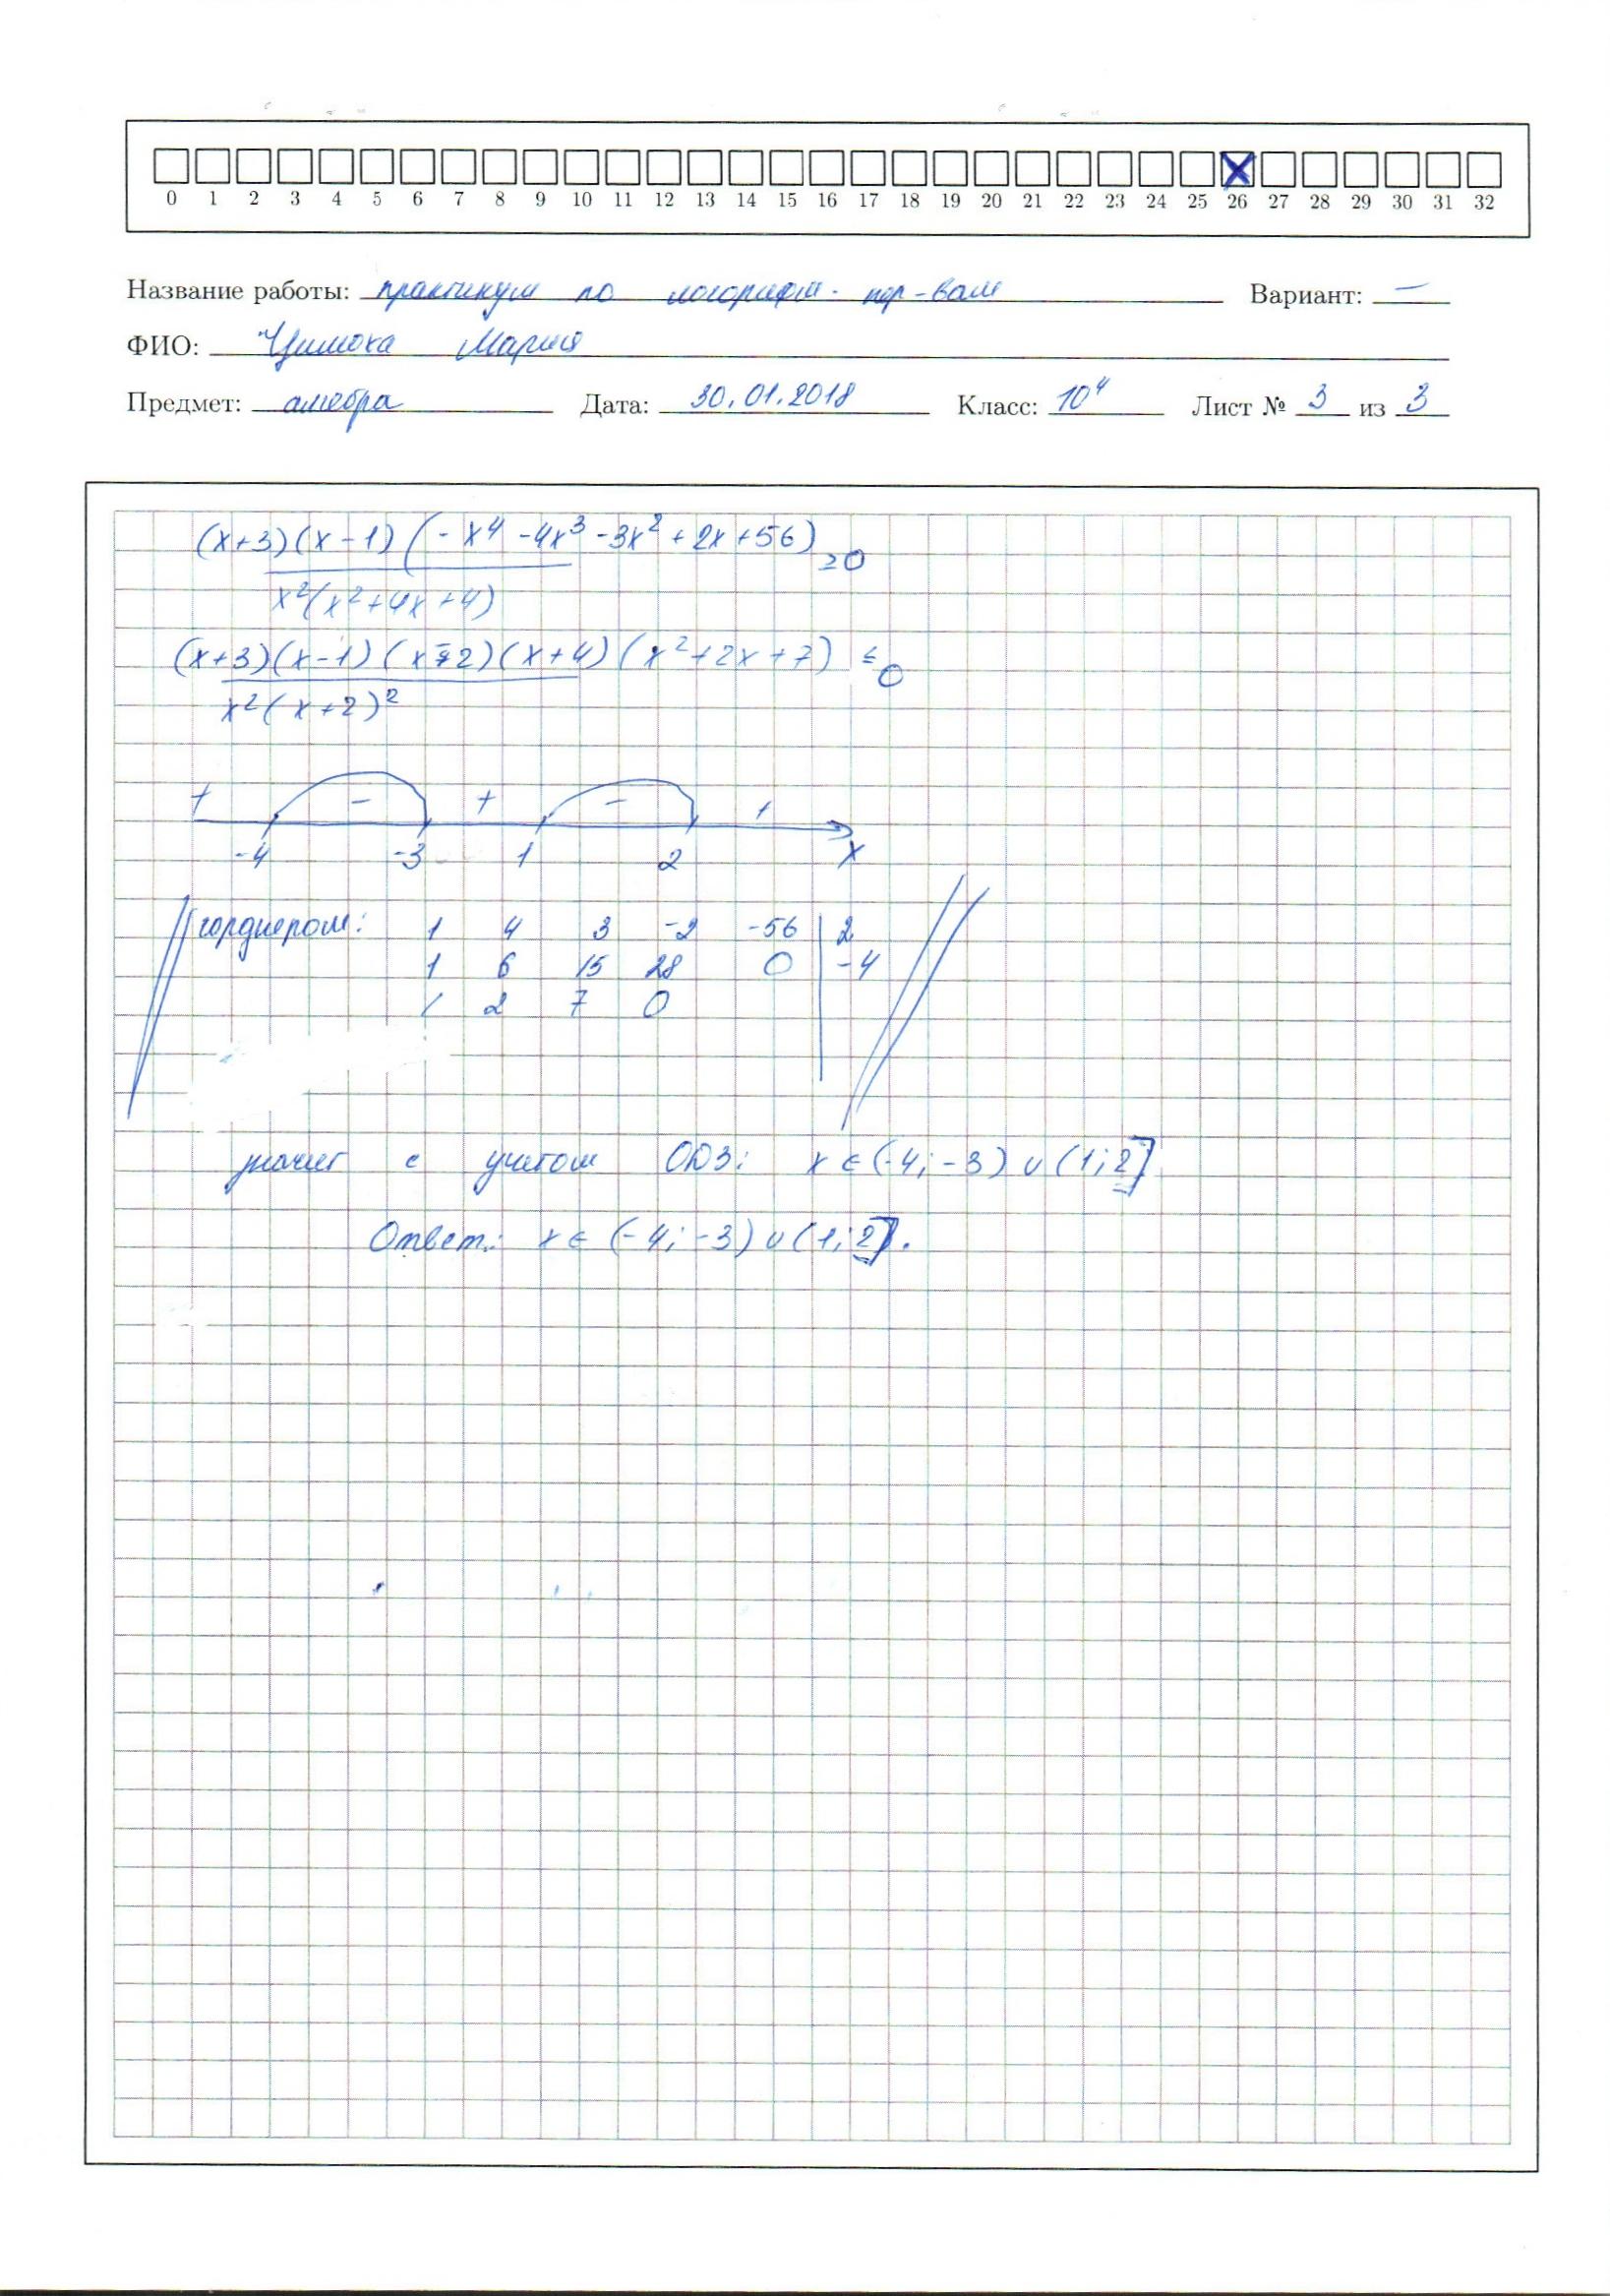 0 1 2 3 4 5 6 7 8 9 10 11 12 13 14 15 16 17 18 19 20 21 22 23 24 25 26 27 28 29 30 31 32
Название работы: практикум по логорифм. нер-вам Вариант: —
ФИО: Цимоха Мария
Предмет: алгебра Дата: 30.01.2018 Класс: 10⁴ Лист № 3 из 3
(x+3)(x-1)(-x⁴-4x³-3x²+2x+56) ≥0
x²(x²+4x+4)
(x+3)(x-1)(x-2)(x+4)(x²+2x+7) ≤0
x²(x+2)²
+ - + - +
-4 -3 1 2 x
горднером: 1 4 3 -2 -56 2
1 6 15 28 0 -4
1 2 7 0
значит с учетом ОДЗ: x∈(-4;-3)∪(1;2]
Ответ: x∈(-4;-3)∪(1;2].